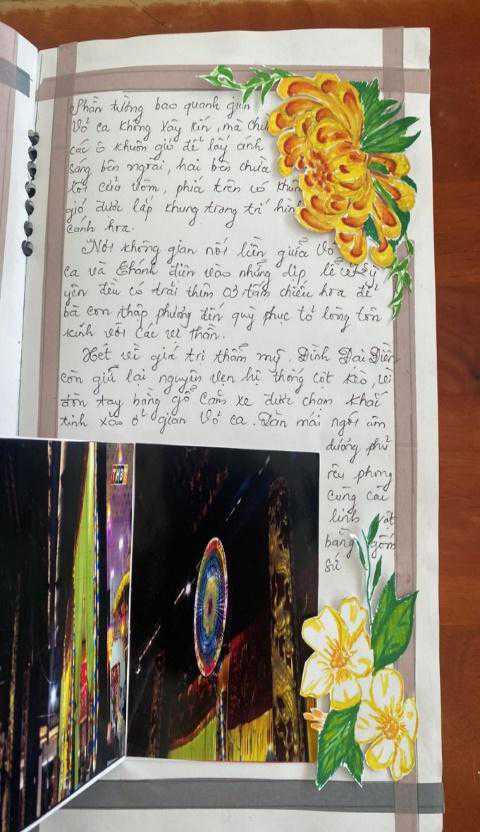 Phần tường bao quanh gian
Võ ca không xây kín, mà chỉ
các ô khuôn gió để lấy ánh
sáng bên ngoài, hai bên chừa
lối cửa vòm, phía trên có khung
gió được lắp khung trang trí hình
cánh hoa.
Nơi không gian nối liền giữa Võ
ca và Chánh điện vào những dịp lễ Kỳ
yên đều có trải thêm 03 tấm chiếu hoa để
bà con thập phương đến quỳ phục tỏ lòng tôn
kính với các vị thần.
Xét về giá trị thẩm mỹ. Đình Đại Điền
còn giữ lại nguyên vẹn hệ thống cột kèo, vì
đòn tay bằng gỗ Căm xe được chạm khắc
tinh xảo ở gian Võ ca. Dàn mái ngói âm
dương phủ
rêu phong
cùng các
linh vật
bằng gốm
sứ
THB